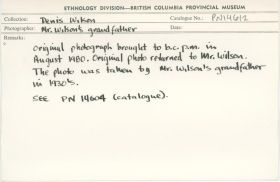 ETHNOLOGY DIVISION—BRITISH COLUMBIA PROVINCIAL MUSEUM
Collection: Denis Wilson Catalogue No.: PN14612
Photographer: Mr. Wilson's grandfather Date:
Remarks:
Original photograph brought to b.c.p.m. in
August 1980. Original photo returned to Mr. Wilson.
The photo was taken by Mr. Wilson's grandfather
in 1930's.
SEE PN 14604 (catalogue).